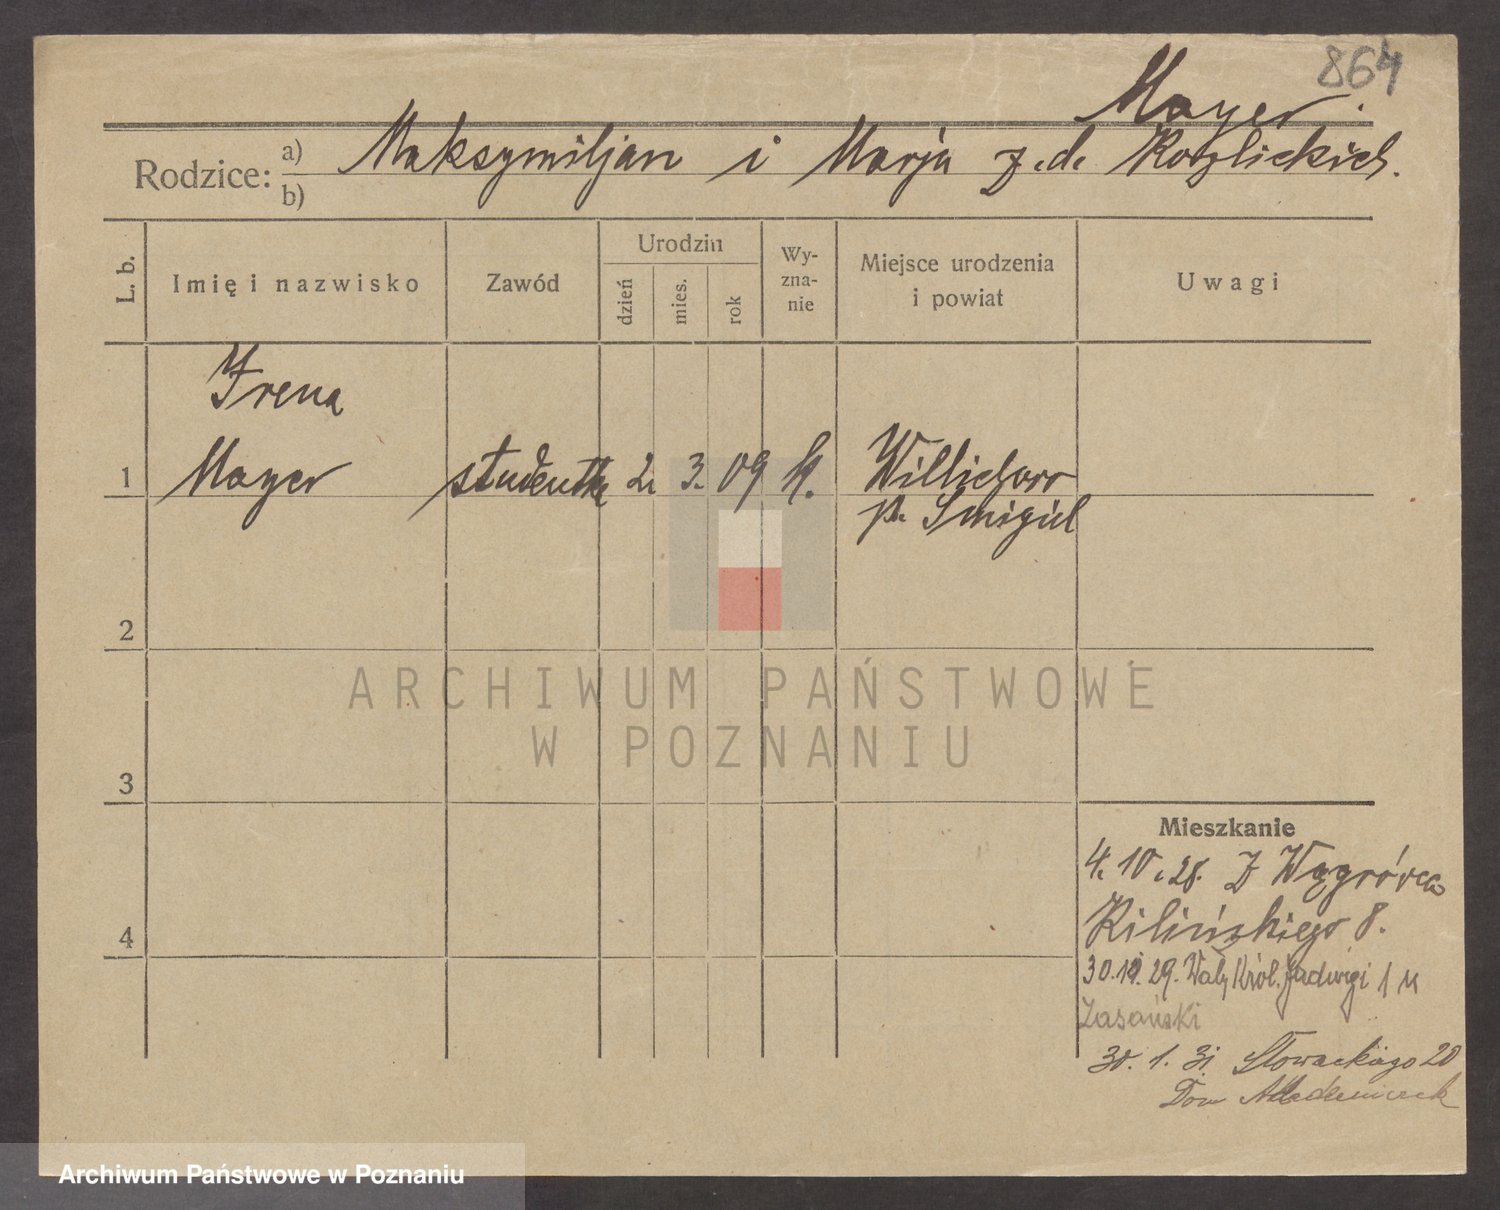 864
Mayer.
Rodzice: a) Maksymiljan i Marja z.d. Kozlickich.
b)
L. b.
Imię i nazwisko
Zawód
Urodzin
dzień
mies.
rok
Wy-
zna-
nie
Miejsce urodzenia
i powiat
Uwagi
Irena
1 Mayer studentka 2. 3. 09 k.
p. Smigiel
2
3
4
ARCHIWUM PAŃSTWOWE
W POZNANIU
Mieszkanie
4.10.28. Z Wągrówca
Kilińskiego 8.
29. Wały Król. Jadwigi 1 u
Zasański
30. 1. 31 Słowackiego 20
Dom Akademicek
Archiwum Państwowe w Poznaniu